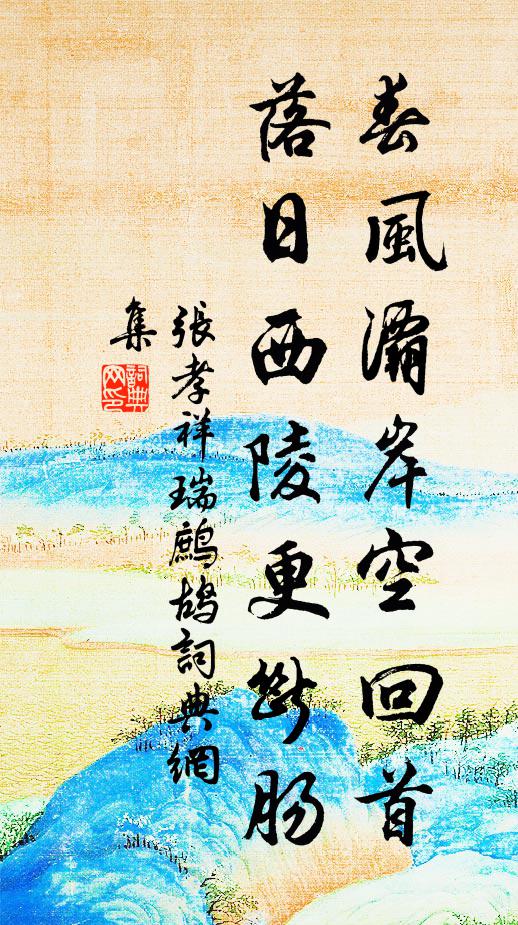 春風灞岸空回首
落日西陵更斷腸
張孝祥瑞鷓鴣詞典網
集
詞典
网印